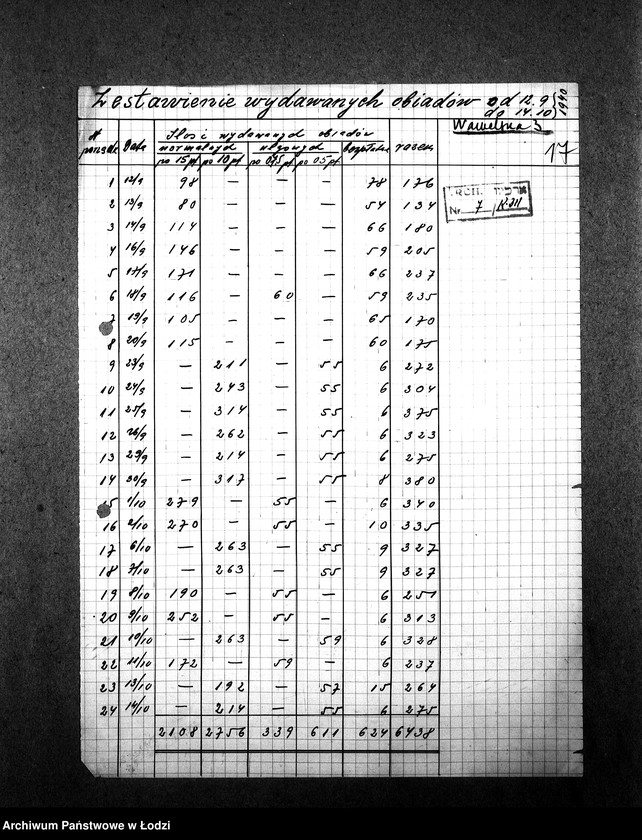 Zestawienie wydawanych obiadów od 12.9
do 14.10 1940
Wawelska 3
17
N porządk Data Ilość wydawanych obiadów razem
normalnych ulgowych bezpłatne
po 15 pf po 10 pf po 0,75 pf po 05 pf
ARCH. ארכיוו
Nr. 7
1 12/9 98 — — — 78 176
2 13/9 80 — — — 54 134
3 14/9 114 — — — 66 180
4 16/9 146 — — — 59 205
5 17/9 171 — — — 66 237
6 18/9 116 — 60 — 59 235
7 19/9 105 — — — 65 170
8 20/9 115 — — — 60 175
9 23/9 — 211 — 55 6 272
10 24/9 — 243 — 55 6 304
11 25/9 — 314 — 55 6 375
12 26/9 — 262 — 55 6 323
13 29/9 — 214 — 55 6 275
14 30/9 — 317 — 55 8 380
15 1/10 279 — 55 — 6 340
16 2/10 270 — 55 — 10 335
17 6/10 — 263 — 55 9 327
18 7/10 — 263 — 55 9 327
19 8/10 190 — 55 — 6 251
20 9/10 252 — 55 — 6 313
21 10/10 — 263 — 59 6 328
22 11/10 172 — 59 — 6 237
23 13/10 — 192 — 57 15 264
24 14/10 — 214 — 55 6 275
2108 2756 339 611 624 6438
Archiwum Państwowe w Łodzi